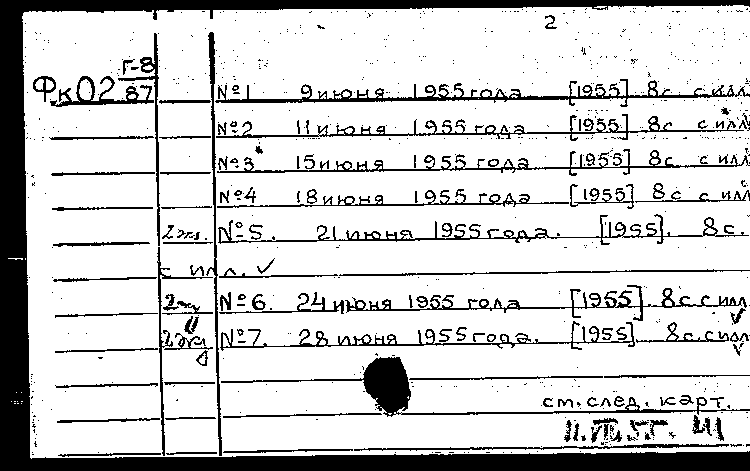 2
Г-8
ФкО2 87 №1 9 июня 1955 года [1955] 8с с илл
№2 11 июня 1955 года [1955] 8с с илл
№3 15 июня 1955 года [1955] 8с с илл
№4 18 июня 1955 года [1955] 8с с илл
2 экз. №5. 21 июня 1955 года. [1955]. 8с.
с илл. ✓
№6. 24 июня 1955 года [1955] 8с с илл
2 экз №7. 28 июня 1955 года. [1955]. 8с. с илл
см. след. карт.
11.VIII.55.